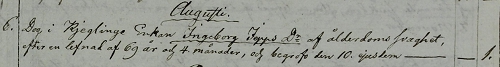 Augusti.
6. Dog i Kjeglinge Enkan Ingeborg Jepps Dr af ålderdoms svaghet,
efter en lefnad af 69 år och 4 månader, och begrofs den 10. ejusdem — 1.